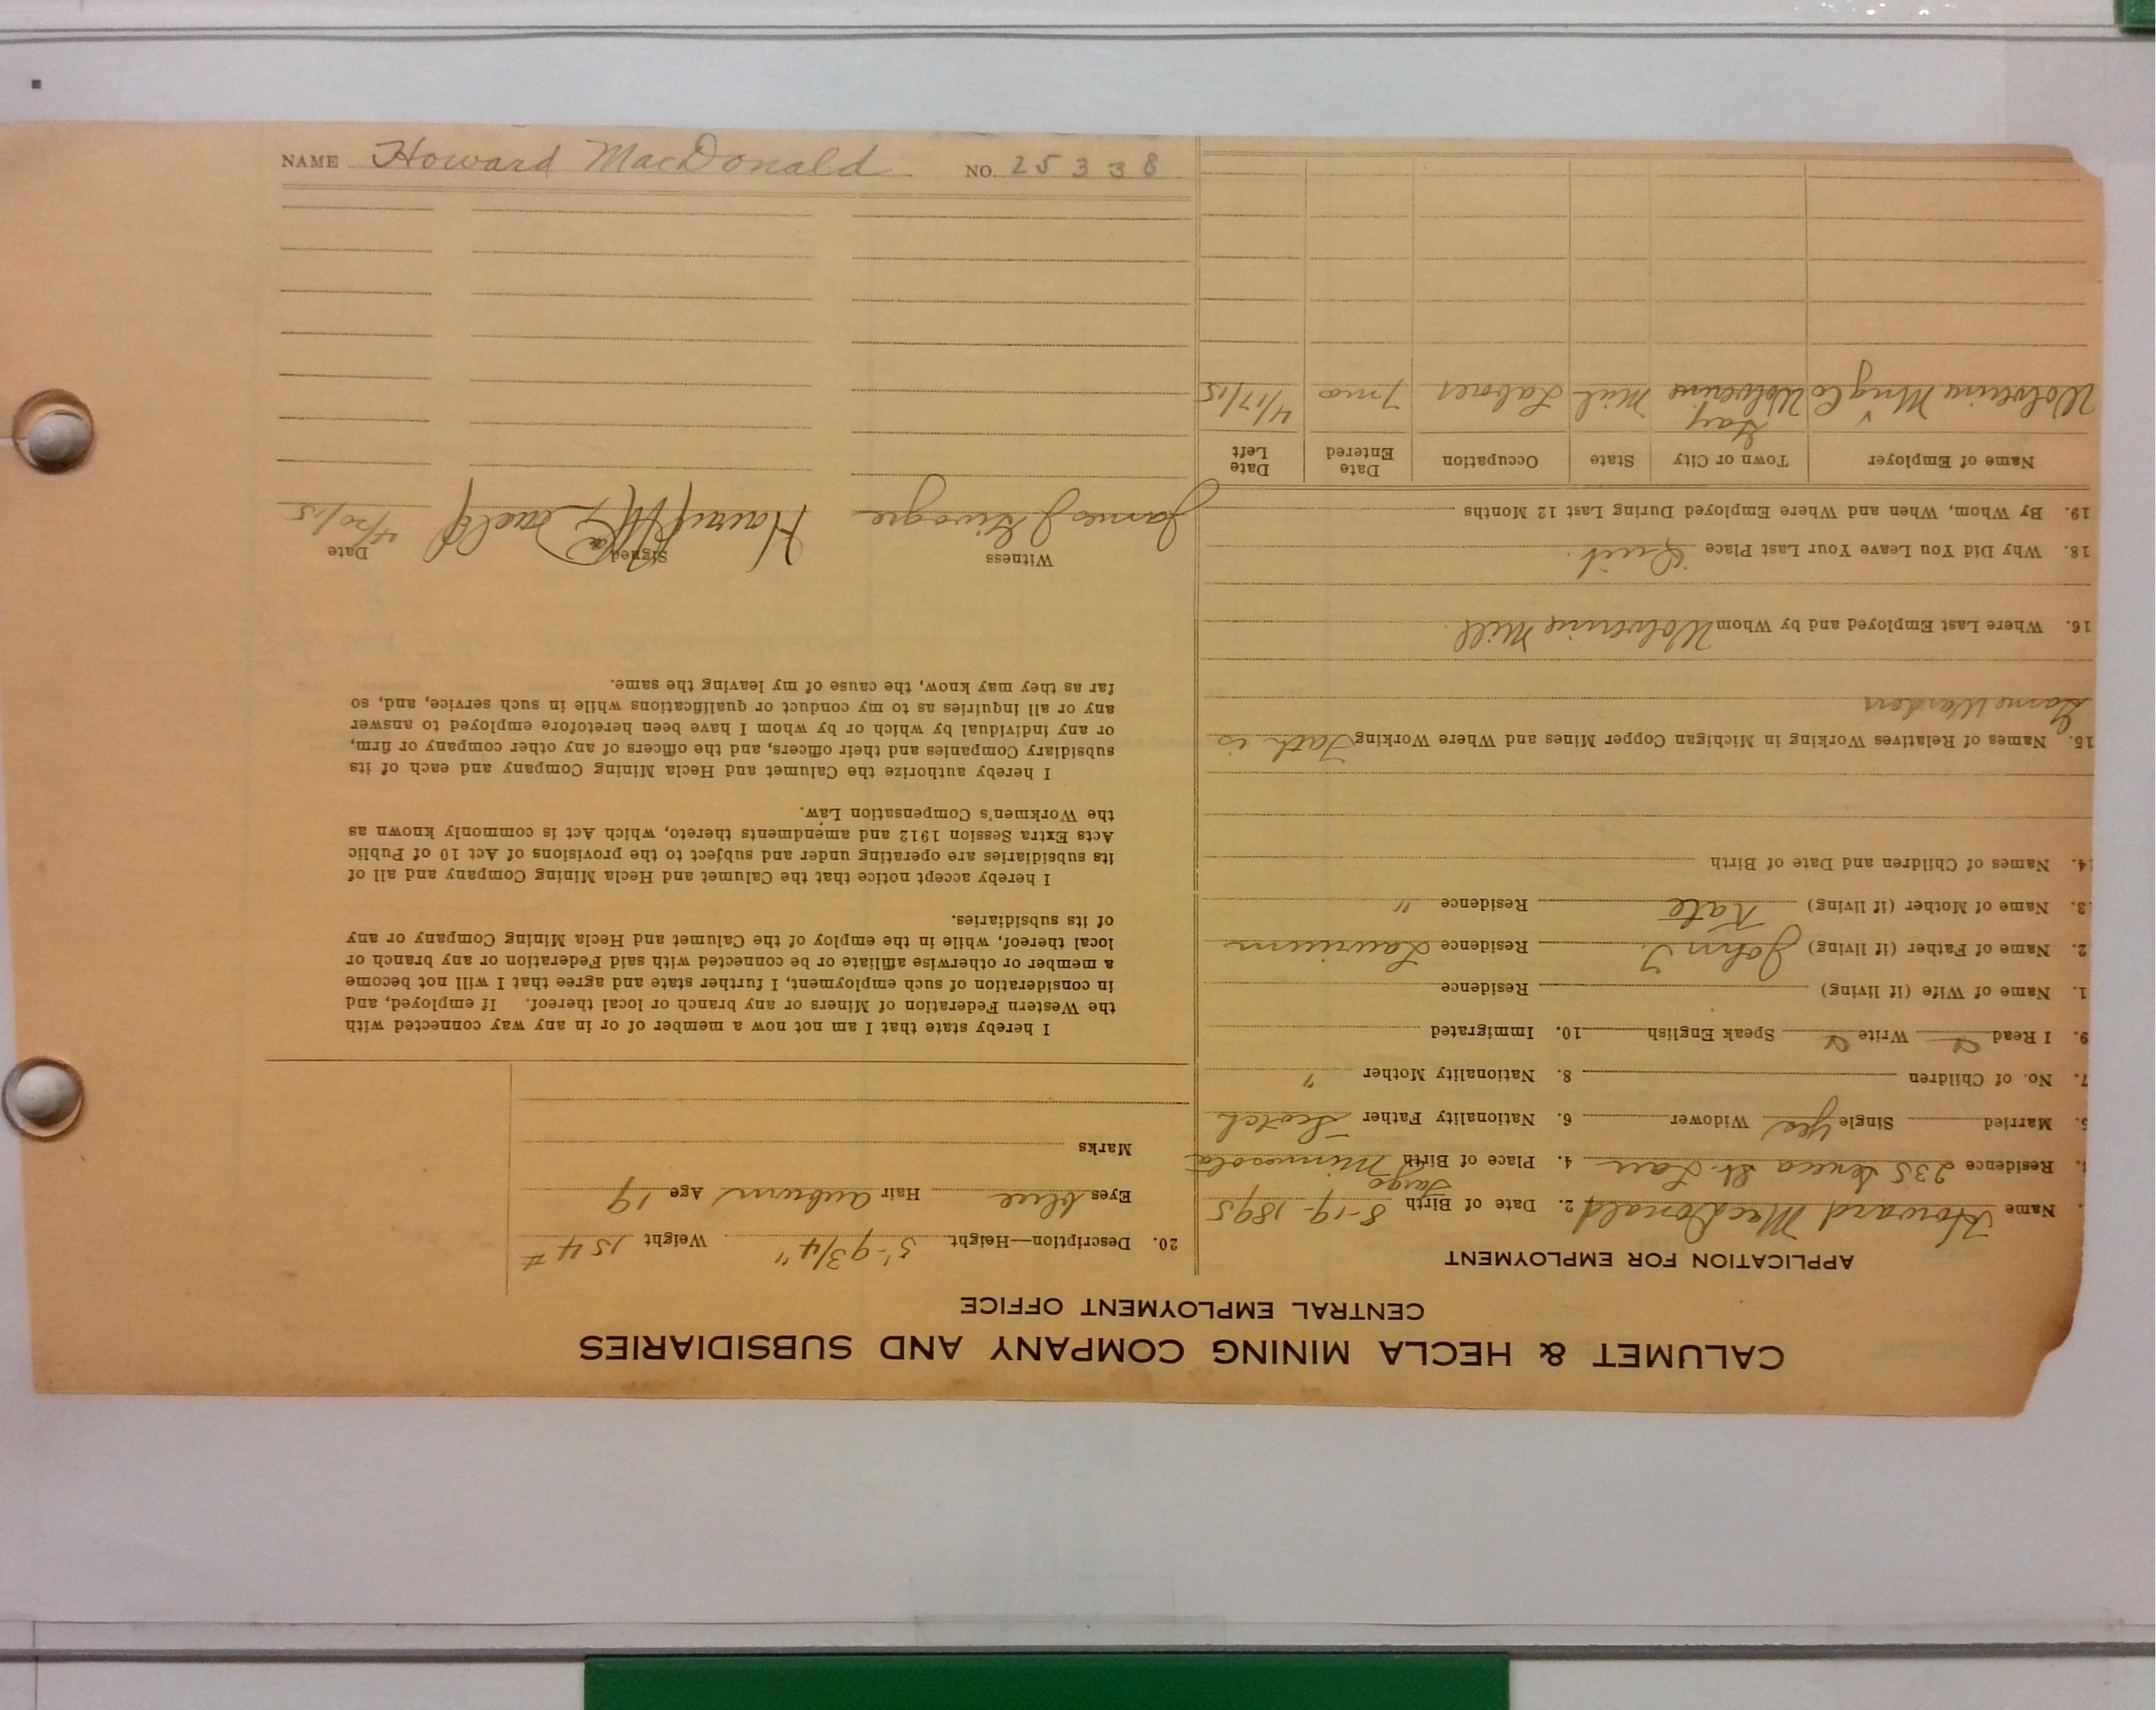 CALUMET & HECLA MINING COMPANY AND SUBSIDIARIES
CENTRAL EMPLOYMENT OFFICE
APPLICATION FOR EMPLOYMENT
Name Howard MacDonald 2. Date of Birth 8-19-1895
Residence 235 Seneca St. Lau 4. Place of Birth Fargo Minnesota
5. Married Single yes Widower 6. Nationality Father Scotch
7. No. of Children 8. Nationality Mother "
9. I Read Write Speak English 10. Immigrated
1. Name of Wife (if living) Residence
2. Name of Father (if living) John T. Residence Laurium
3. Name of Mother (if living) Kate Residence "
4. Names of Children and Date of Birth
15. Names of Relatives Working in Michigan Copper Mines and Where Working Fath is
Game Warden
16. Where Last Employed and by Whom Wolverine Mill.
18. Why Did You Leave Your Last Place Quit.
19. By Whom, When and Where Employed During Last 12 Months
Name of Employer Town or City State Occupation Date Entered Date Left
Gay
Wolverine Mng Co Wolverine Mich Laborer 7 mo 4/17/15
20. Description—Height 5'-9 3/4" Weight 154 #
Eyes blue Hair auburn Age 19
Marks
I hereby state that I am not now a member of or in any way connected with
the Western Federation of Miners or any branch or local thereof. If employed, and
in consideration of such employment, I further state and agree that I will not become
a member or otherwise affiliate or be connected with said Federation or any branch or
local thereof, while in the employ of the Calumet and Hecla Mining Company or any
of its subsidiaries.
I hereby accept notice that the Calumet and Hecla Mining Company and all of
its subsidiaries are operating under and subject to the provisions of Act 10 of Public
Acts Extra Session 1912 and amendments thereto, which Act is commonly known as
the Workmen's Compensation Law.
I hereby authorize the Calumet and Hecla Mining Company and each of its
subsidiary Companies and their officers, and the officers of any other company or firm,
or any individual by which or by whom I have been heretofore employed to answer
any or all inquiries as to my conduct or qualifications while in such service, and, so
far as they may know, the cause of my leaving the same.
Witness Signed Date
James J Howard MacDonald 4/20/15
NAME Howard MacDonald NO. 25338